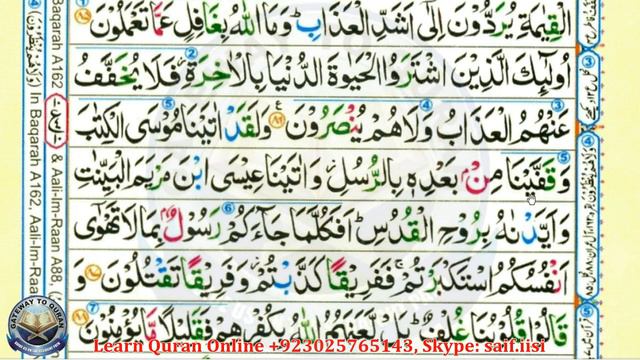 الْقِيٰمَةِ يُرَدُّوْنَ اِلٰۤى اَشَدِّ الْعَذَابِ ؕ وَمَا اللّٰهُ بِغَافِلٍ عَمَّا تَعْمَلُوْنَ
اُولٰٓئِكَ الَّذِيْنَ اشْتَرَوُا الْحَيٰوةَ الدُّنْيَا بِالْاٰخِرَةِ ؗ فَلَا يُخَفَّفُ
عَنْهُمُ الْعَذَابُ وَلَا هُمْ يُنْصَرُوْنَ وَلَقَدْ اٰتَيْنَا مُوْسَى الْكِتٰبَ
وَقَفَّيْنَا مِنْۢ بَعْدِهٖ بِالرُّسُلِ ؗ وَاٰتَيْنَا عِيْسَى ابْنَ مَرْيَمَ الْبَيِّنٰتِ
وَاَيَّدْنٰهُ بِرُوْحِ الْقُدُسِ ؕ اَفَكُلَّمَا جَآءَكُمْ رَسُوْلٌۢ بِمَا لَا تَهْوٰۤى
اَنْفُسُكُمُ اسْتَكْبَرْتُمْ ۚ فَفَرِيْقًا كَذَّبْتُمْ ؗ وَفَرِيْقًا تَقْتُلُوْنَ وَ
قَالُوْا قُلُوْبُنَا غُلْفٌ ؕ بَلْ لَّعَنَهُمُ اللّٰهُ بِكُفْرِهِمْ فَقَلِيْلًا مَّا يُؤْمِنُوْنَ
Baqarah A162
(وَلَا هُمْ يُنْظَرُوْنَ) In Baqarah A162, Aali-Im-Raa
& Aali-Im-Raan A88,
GATEWAY TO QURAN
Learn Quran Online +923025765143, Skype: saif.iisi